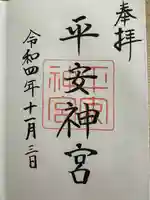 奉拝
平安神宮
令和四年十一月三日